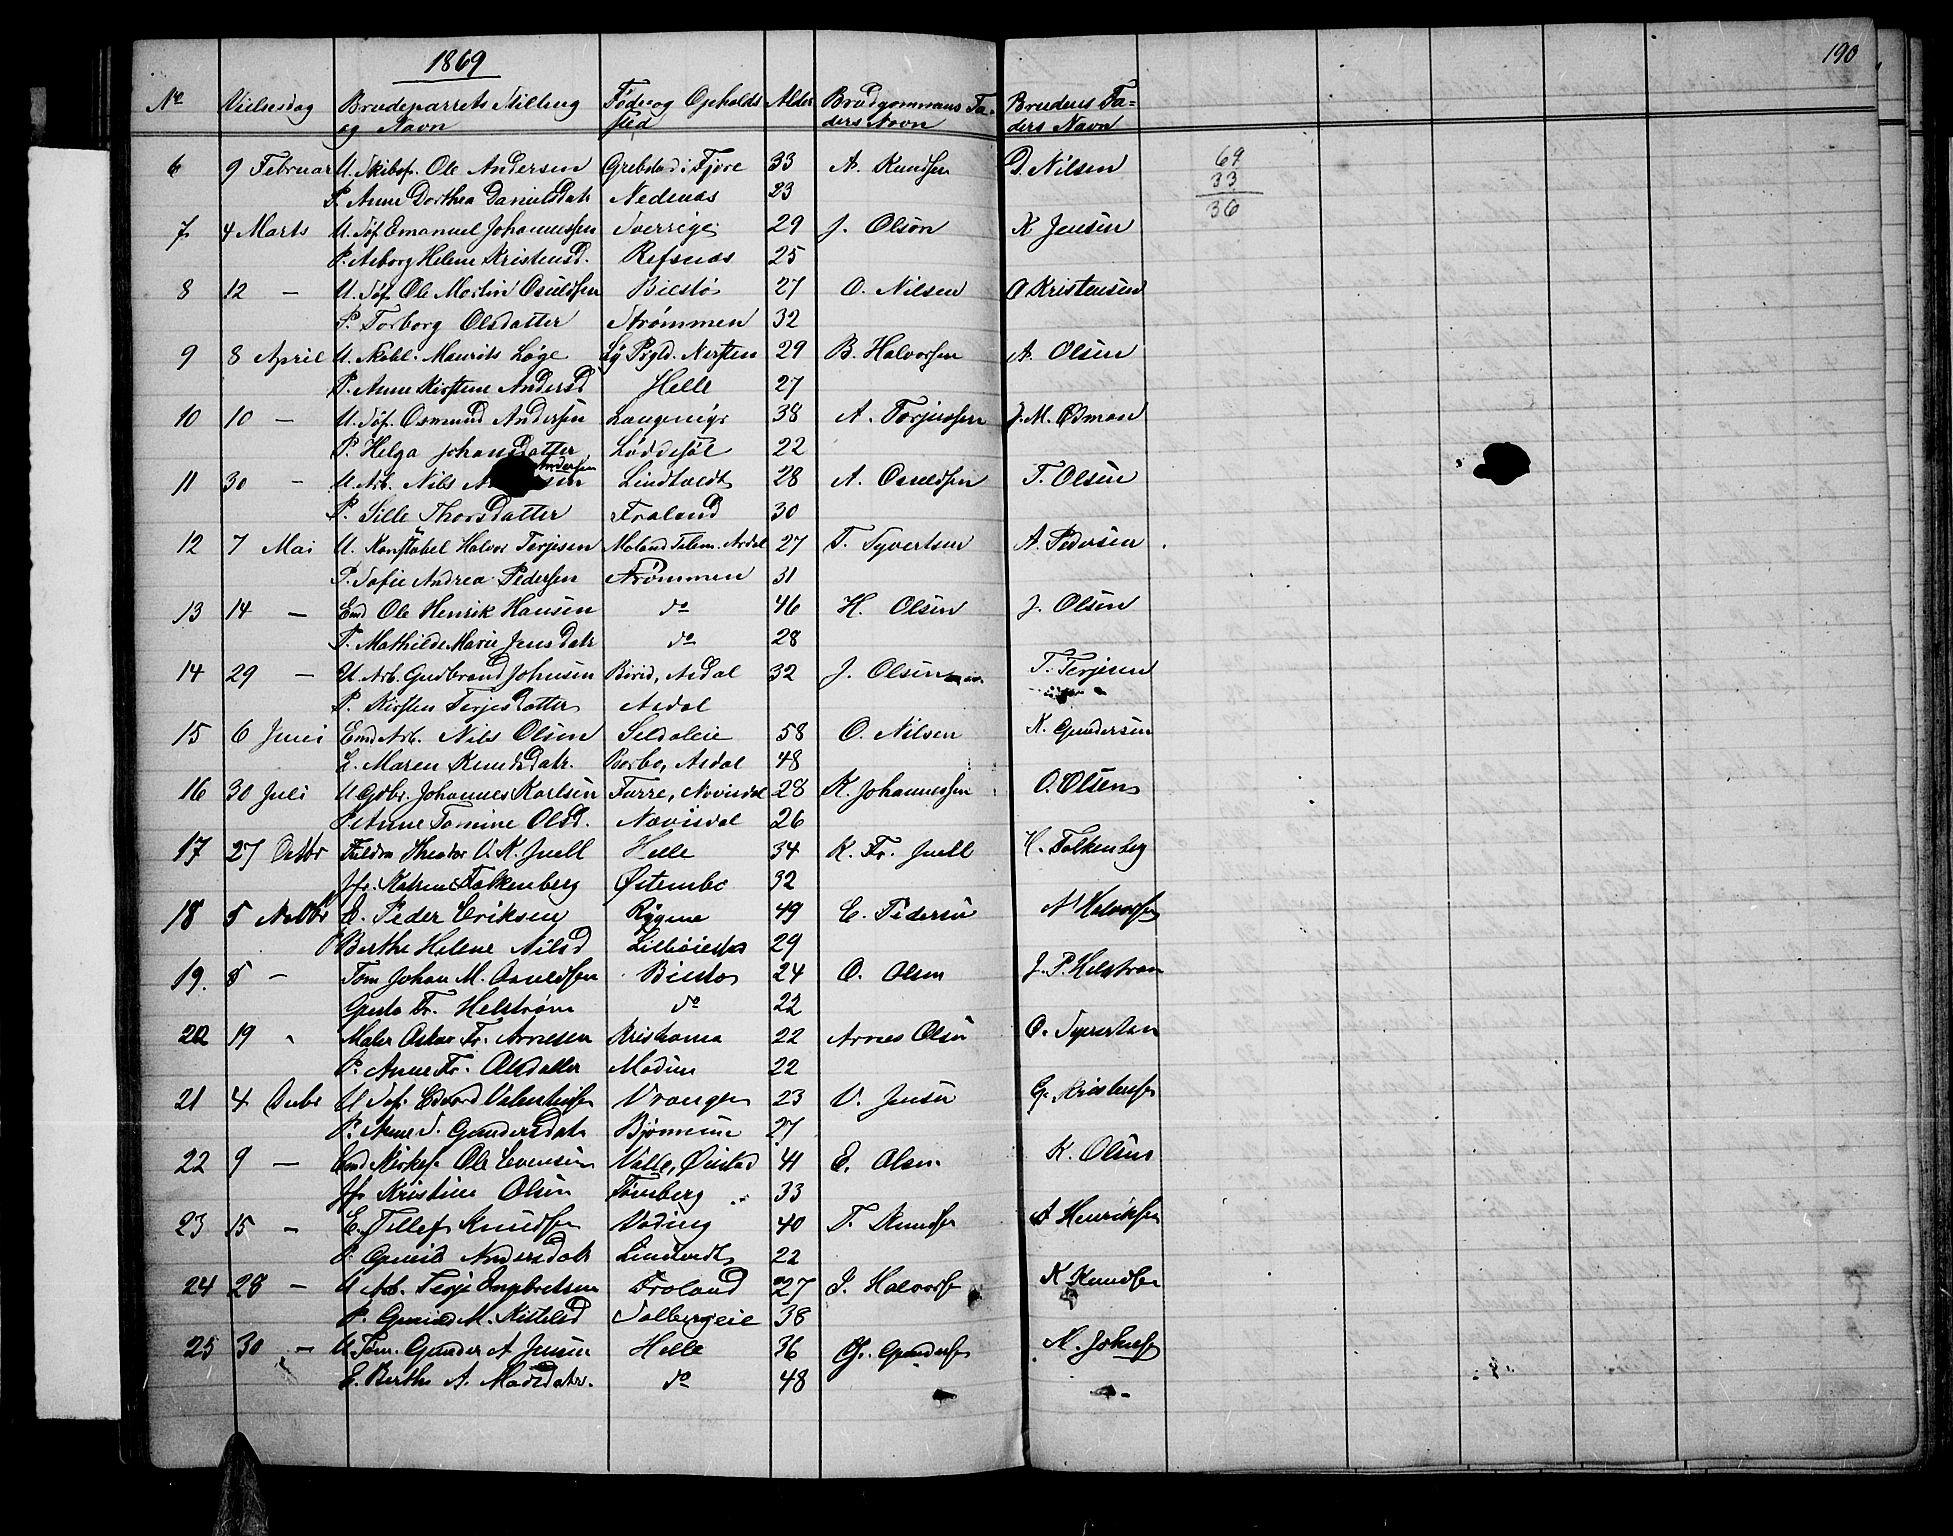 1869
190
No Vielsesdag Brudeparrets Stilling Føde og Opholds Alder Brudgommens Fa- Brudens Fa-
og Navn sted ders Navn ders Navn
6 9 Februar U. Skibsf. Ole Andersen Grebstad i Fjære 33 A. Knudsen D. Nilsen 69
P. Anne Dorthea Danielsdatr Nedenæs 23 33
36
7 4 Marts U. Søf. Emanuel Johannessen Sverrige 29 J. Olson K Jensen
P. Aeborg Helene Kristensd. Refsnæs 25
8 12 — U. Søf. Ole Martin Osuldsen Bilstø 27 O. Nilsen O Kristensen
P. Torborg Olsdatter Strømmen 32
9 8 April U. Maurits Løge 29 B. Halvorsen A. Olsen
P. Anne Kirstine Andersd Helle 27
10 10 — U. Søf. Osmund Andersen 38 A. Torjussen J. M. Edman
P. Helga Johansdatter Løddesøl 22
11 30 — U. Arb. Nils Andersen Lindtvedt 28 A. Osuldsen T. Olsen
P. Sille Thorsdatter Froland 30
12 7 Mai U. Konstabel Halvor Terjesen Moland Telem. Asdal 27 T. Syvertsen A. Pedersen
P. Sofie Andrea Pedersen Strømmen 31
13 14 — Emd Ole Henrik Hansen do 46 H. Olsen J. Olsen
P. Mathilde Marie Jensdatr do 28
14 29 — U. Arb. Gudbrand Johnsen Birid, Asdal 32 J. Olsen T. Terjesen
P. Kirsten Terjesdatter Asdal
15 6 Juni Emd Arb. Nils Olsen Seldaleie 58 O. Nilsen K. Gundersen
E. Maren Knudsdatr. Berbo, Asdal 48
16 30 Juli U Gdbr. Johannes Karlsen Furre, Nævisdal 28 K. Johannessen O. Olsen
P. Anne Tomine Olsd. Nævisdal 26
17 27 Octbr Theodor V. K. Juell Helle 34 K. Fr. Juell H. Falkenberg
Jfr. Katrine Falkenberg Østembo 32
18 5 Novbr E. Peder Eriksen Rygene 49 E. Pedersen N Halvorsen
P Berthe Helene Nilsd 29
19. 5 — Tøm Johan M. Osuldsen Bilstø 24 O. Olsen J. P. Helstrøm
Fr. Helstrøm do 22
20 19 " Maler Oskar Fr. Arnesen Kristiania 22 Arnes Olsen O. Syvertsen
P. Anne Fr. Olsdatter Modum 22
21 4 Decbr U Søf. Edvard Valentinsen Vrangen 23 V. Jensen G. Kristensen
P. Anne S. Gundersdatr 27
22 9 — Emd Kirkes. Ole Evensen Valle, Øiestad 41 E. Olsen K. Olsen
Jfr Kristine Olsen Tønsberg 33
23 15 — E. Tellef Knudsen Vading 40 T. Knudsen A Henriksen
P. Gunild Andersdatr Lindtvedt 22
24 28 — U Arb. Terje Ingbretsen Froland 27 I. Halvorsen K Knudsen
P. Gunild M. Kittelsd Solbergeie 38
25 30 — U Tøm. Gunder A Jensen Helle 36 G. Gundersen M. Johnsen
E. Berthe A. Madsdatr. do 48